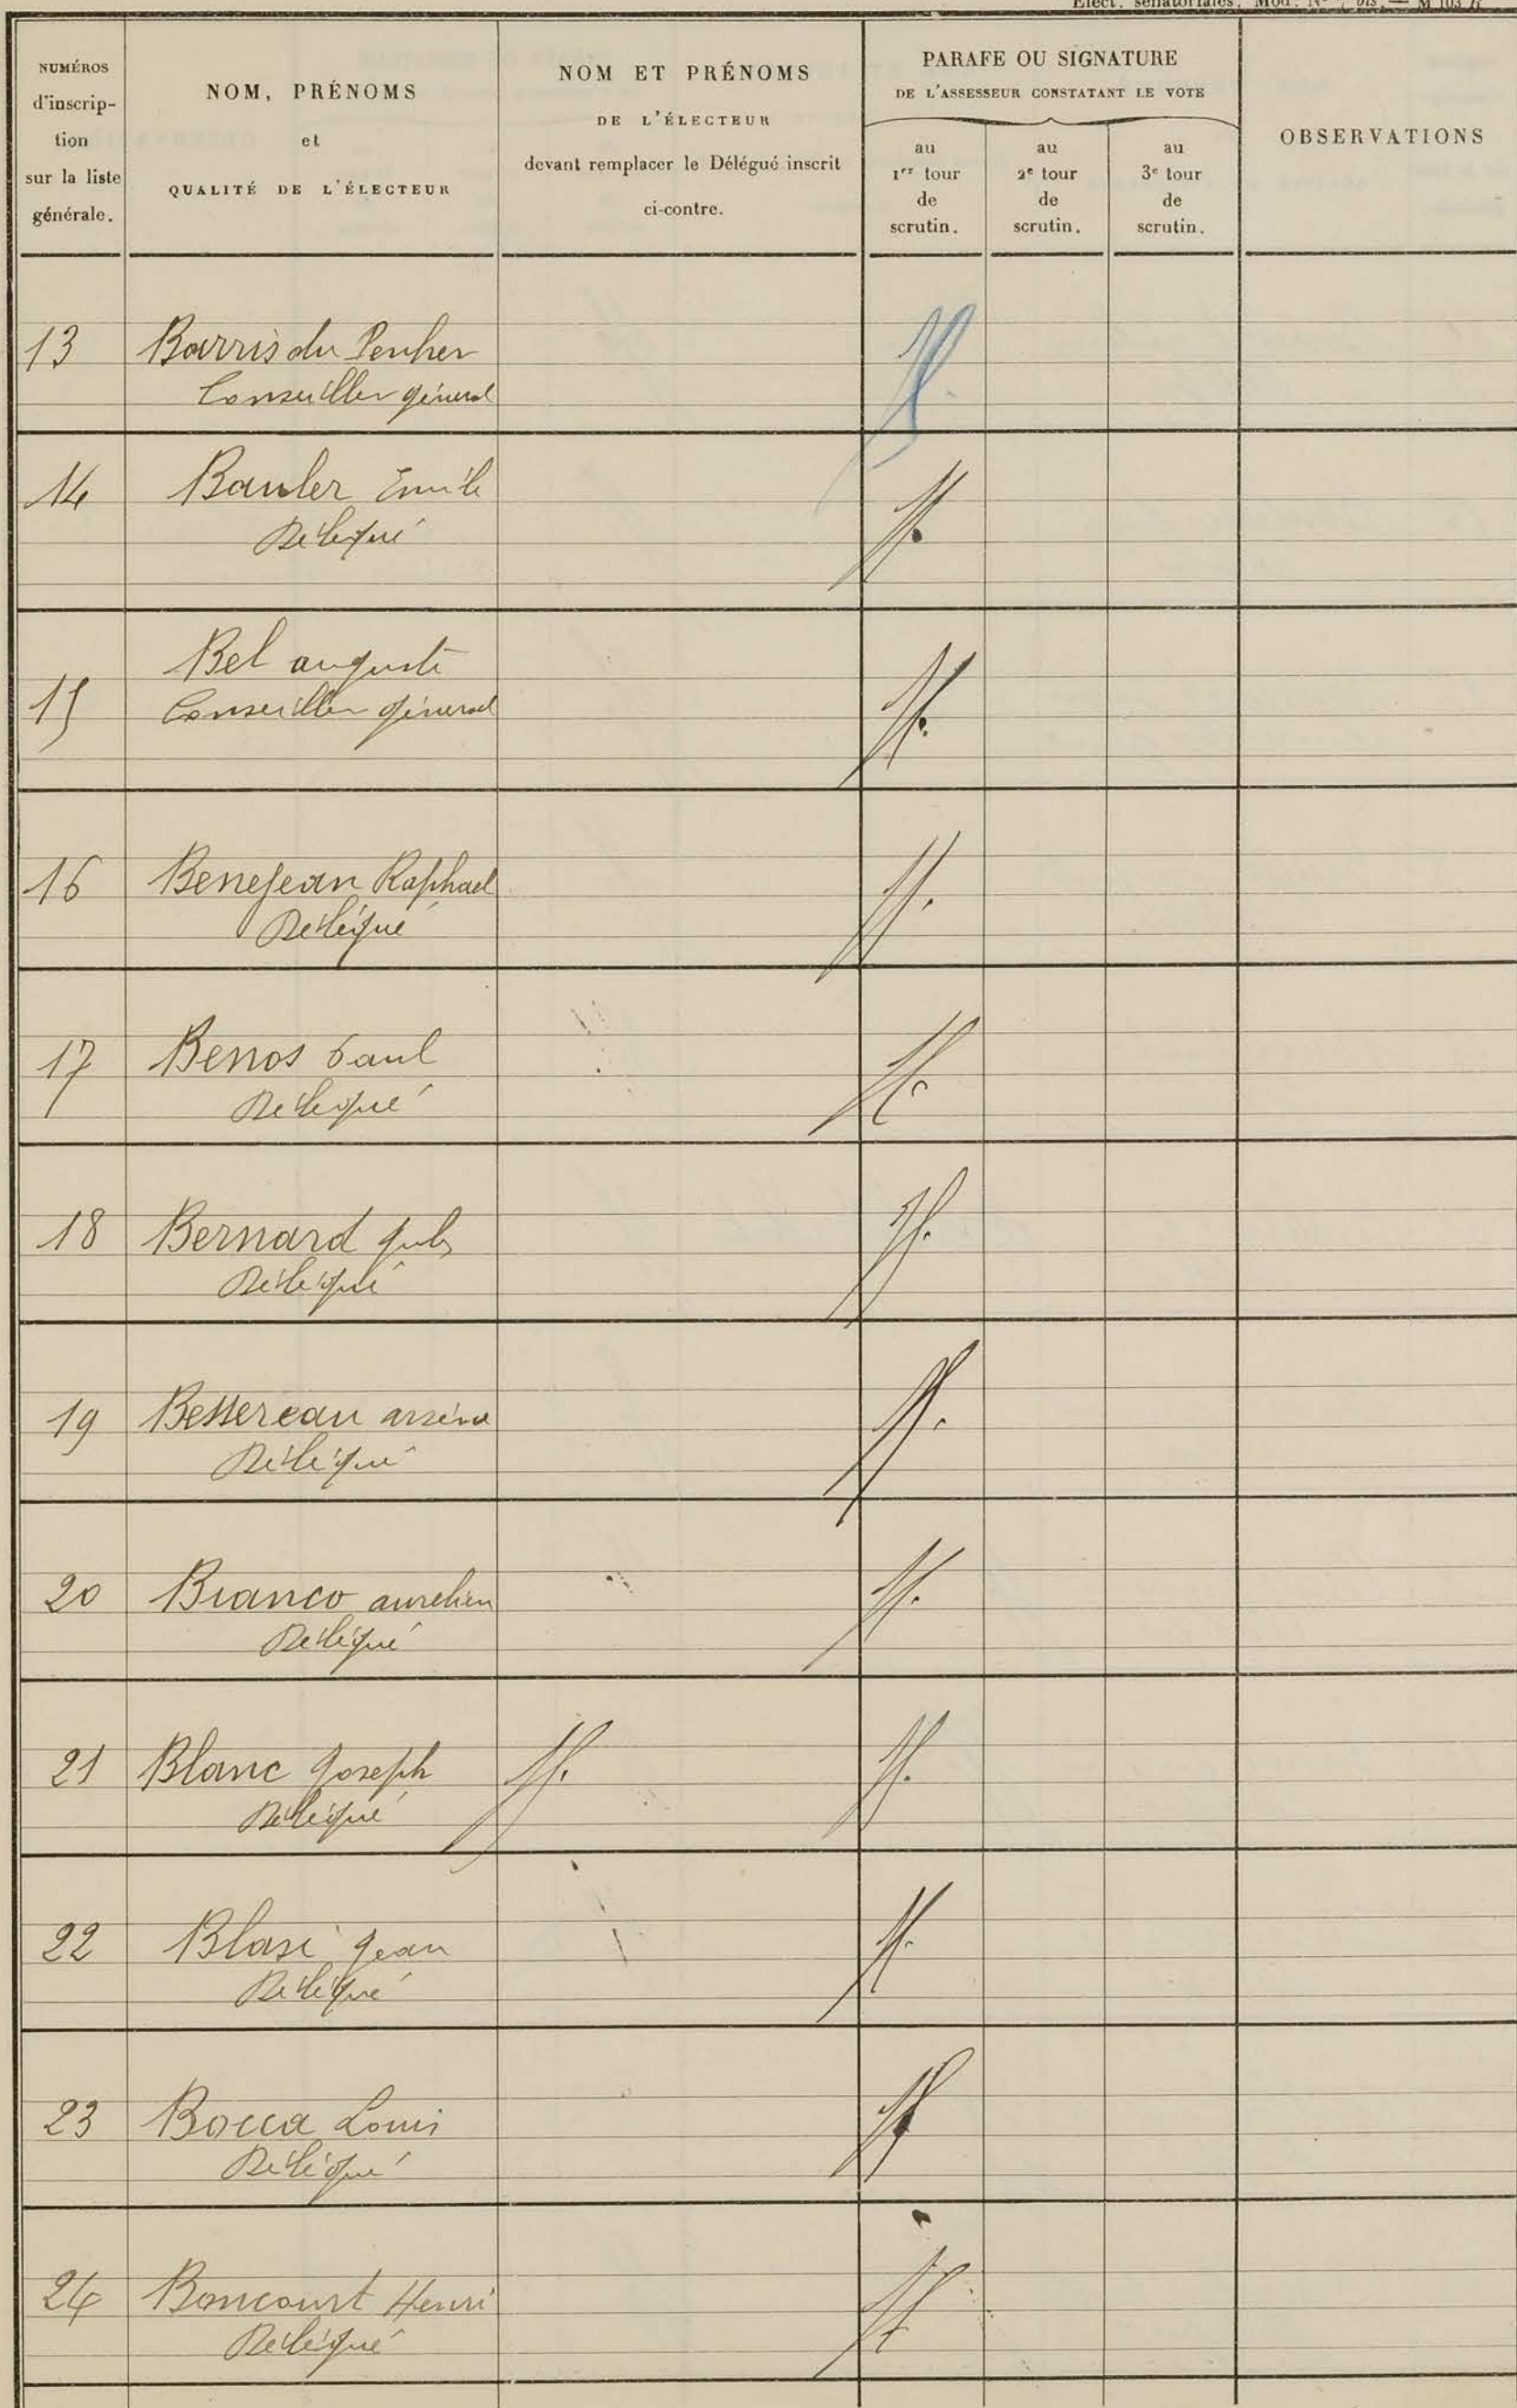 Elect. sénatoriales. Mod. N° 7 bis. — M 103 R
NUMÉROS
d'inscrip-
tion
sur la liste
générale.
NOM, PRÉNOMS
et
QUALITÉ DE L'ÉLECTEUR
NOM ET PRÉNOMS
DE L'ÉLECTEUR
devant remplacer le Délégué inscrit
ci-contre.
PARAFE OU SIGNATURE
DE L'ASSESSEUR CONSTATANT LE VOTE
au
1er tour
de
scrutin.
au
2e tour
de
scrutin.
au
3e tour
de
scrutin.
OBSERVATIONS
13 Barris du Penher
Conseiller général
14 Bauler Emile
Délégué
15 Bel auguste
Conseiller général
16 Benejean Raphael
Délégué
17 Benos Paul
Délégué
18 Bernard Jules
Délégué
19 Bessereau arsène
Délégué
20 Bianco aurelien
Délégué
21 Blanc Joseph
Délégué
22 Blasi Jean
Délégué
23 Bocca Louis
Délégué
24 Boncourt Henri
Délégué